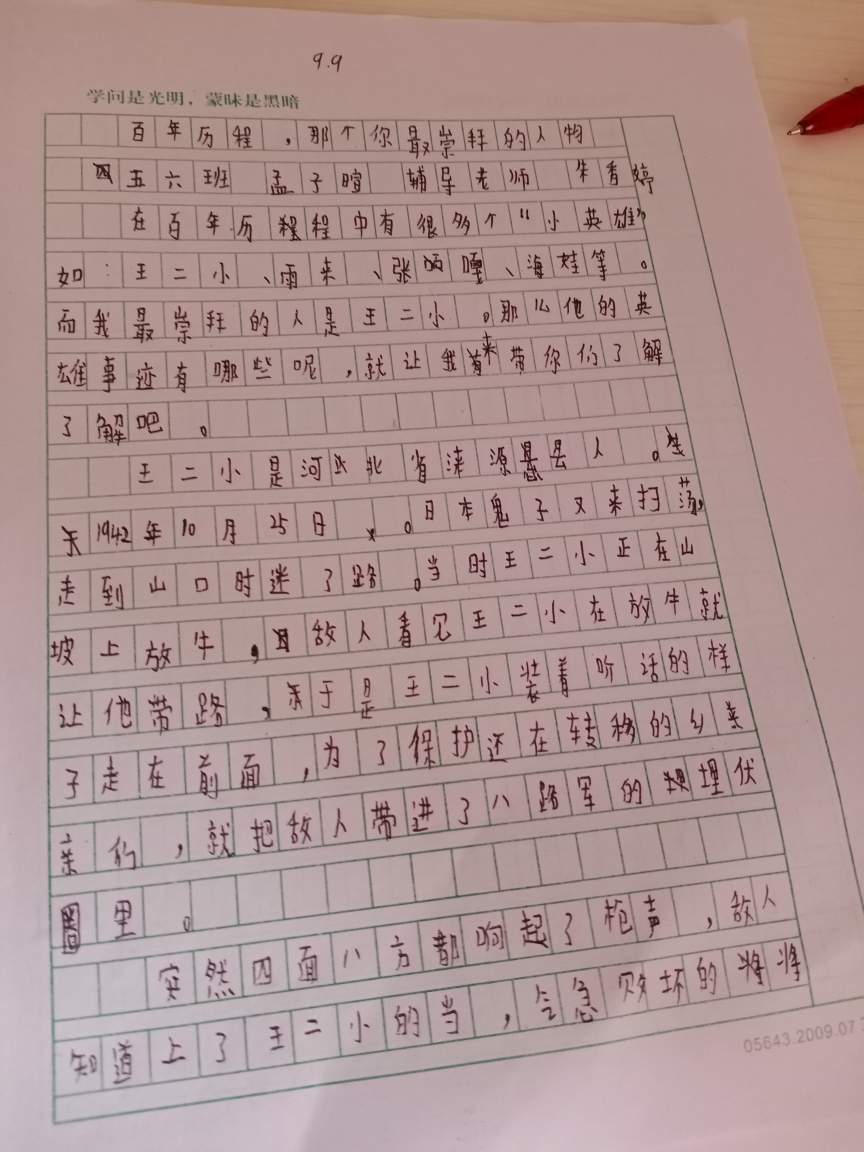 9.9
学问是光明，蒙昧是黑暗
百年历程，那个你最崇拜的人物
五六班 孟子暄 辅导老师 朱香婷
在百年历程程中有很多个“小英雄”
如：王二小、雨来、张嘎、海娃等。
而我最崇拜的人是王二小。那么他的英
雄事迹有哪些呢，就让我来带你们了解
了解吧。
王二小是河北省涞源县人。生
于1942年10月25日。日本鬼子又来扫荡，
走到山口时迷了路。当时王二小正在山
坡上放牛，敌人看见王二小在放牛就
让他带路，于是王二小装着听话的样
子走在前面，为了保护还在转移的乡
亲们，就把敌人带进了八路军的埋伏
圈里。
突然四面八方都响起了枪声，敌人
知道上了王二小的当，气急败坏的将
05643.2009.07